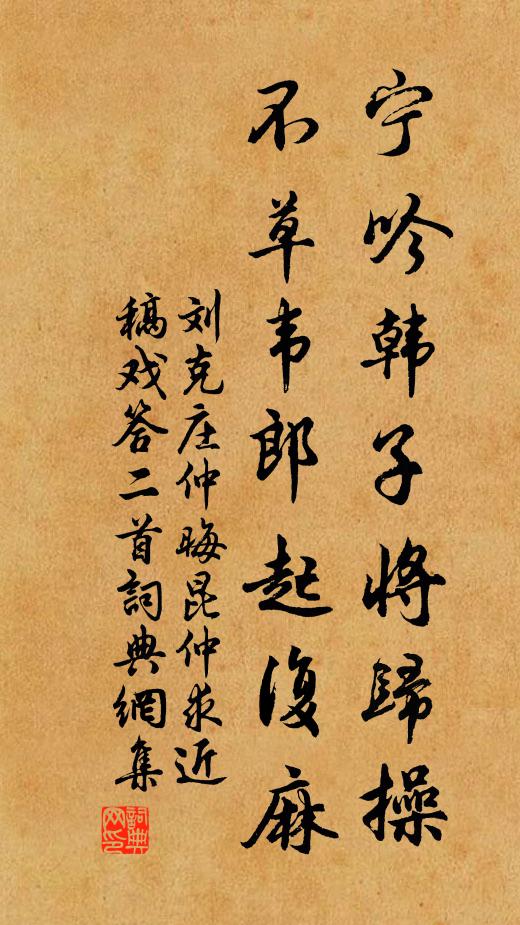 宁吟韩子将歸操
不草韦郎起復麻
刘克庄仲晦昆仲求近
稿戏答二首詞典網集
詞典
网印